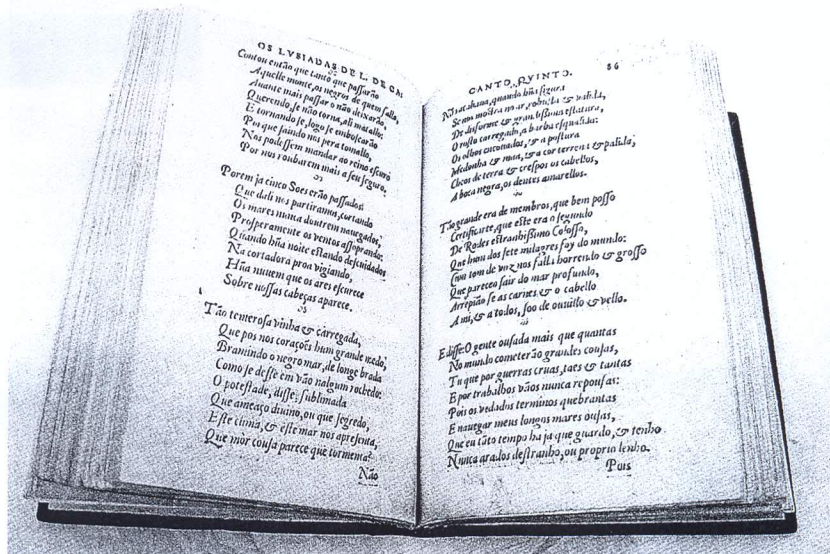 OS LVSIADAS DE L. DE CA.
Contou então que tanto que passarão
Aquelle monte, os negros de quem fallo,
Auante mais passar o não deixarão,
Querendo, se não torna, ali matallo
E tornando se, logo se emboscarão
Porque saindo nos pera tomallo,
Nos podessem mandar ao reino escuro
Por nos roubarem mais a seu seguro.
Porem ja cinco Soes erão passados
Que dali nos partiramos, cortando
Os mares nunca doutrem nauegados,
Prosperamente os ventos assoprando:
Quando hũa noite estando descuidados
Na cortadora proa vigiando,
Hũa nuuem que os ares escurece
Sobre nossas cabeças aparece.
Tão temerosa vinha & carregada,
Que pos nos corações hum grande medo,
Bramindo o negro mar, de longe brada
Como se desse em vão nalgum rochedo:
O potestade, disse, sublimada
Que ameaço diuino, ou que segredo,
Este clima, & este mar nos apresenta,
Que mor cousa parece que tormenta?
Não
CANTO QVINTO.
86
Não acabaua, quando hũa figura
Se nos mostra no ar, robusta & valida,
De disforme & grandissima estatura,
O rosto carregado, a barba esqualida:
Os olhos encouados, & a postura
Medonha & maa, & a cor terrena & palida,
Cheos de terra & crespos os cabellos,
A boca negra, os dentes amarellos.
Tão grande era de membros, que bem posso
Certificarte, que este era o segundo
De Rodes estranhissimo Colosso,
Que hum dos sete milagres foy do mundo:
Cum tom de voz nos falla horrendo & grosso
Que pareceo sair do mar profundo,
Arrepião se as carnes & o cabello
A mi, & a todos, soo de ouuillo & vello.
E disse: O gente ousada mais que quantas
No mundo cometerão grandes cousas,
Tu que por guerras cruas, taes & tantas
E por trabalhos vãos nunca repousas:
Pois os vedados terminos quebrantas
E nauegar meus longos mares ousas,
Que eu tãto tempo ha ja que guardo, & tenho
Nunca arados destranho, ou proprio lenho.
Pois